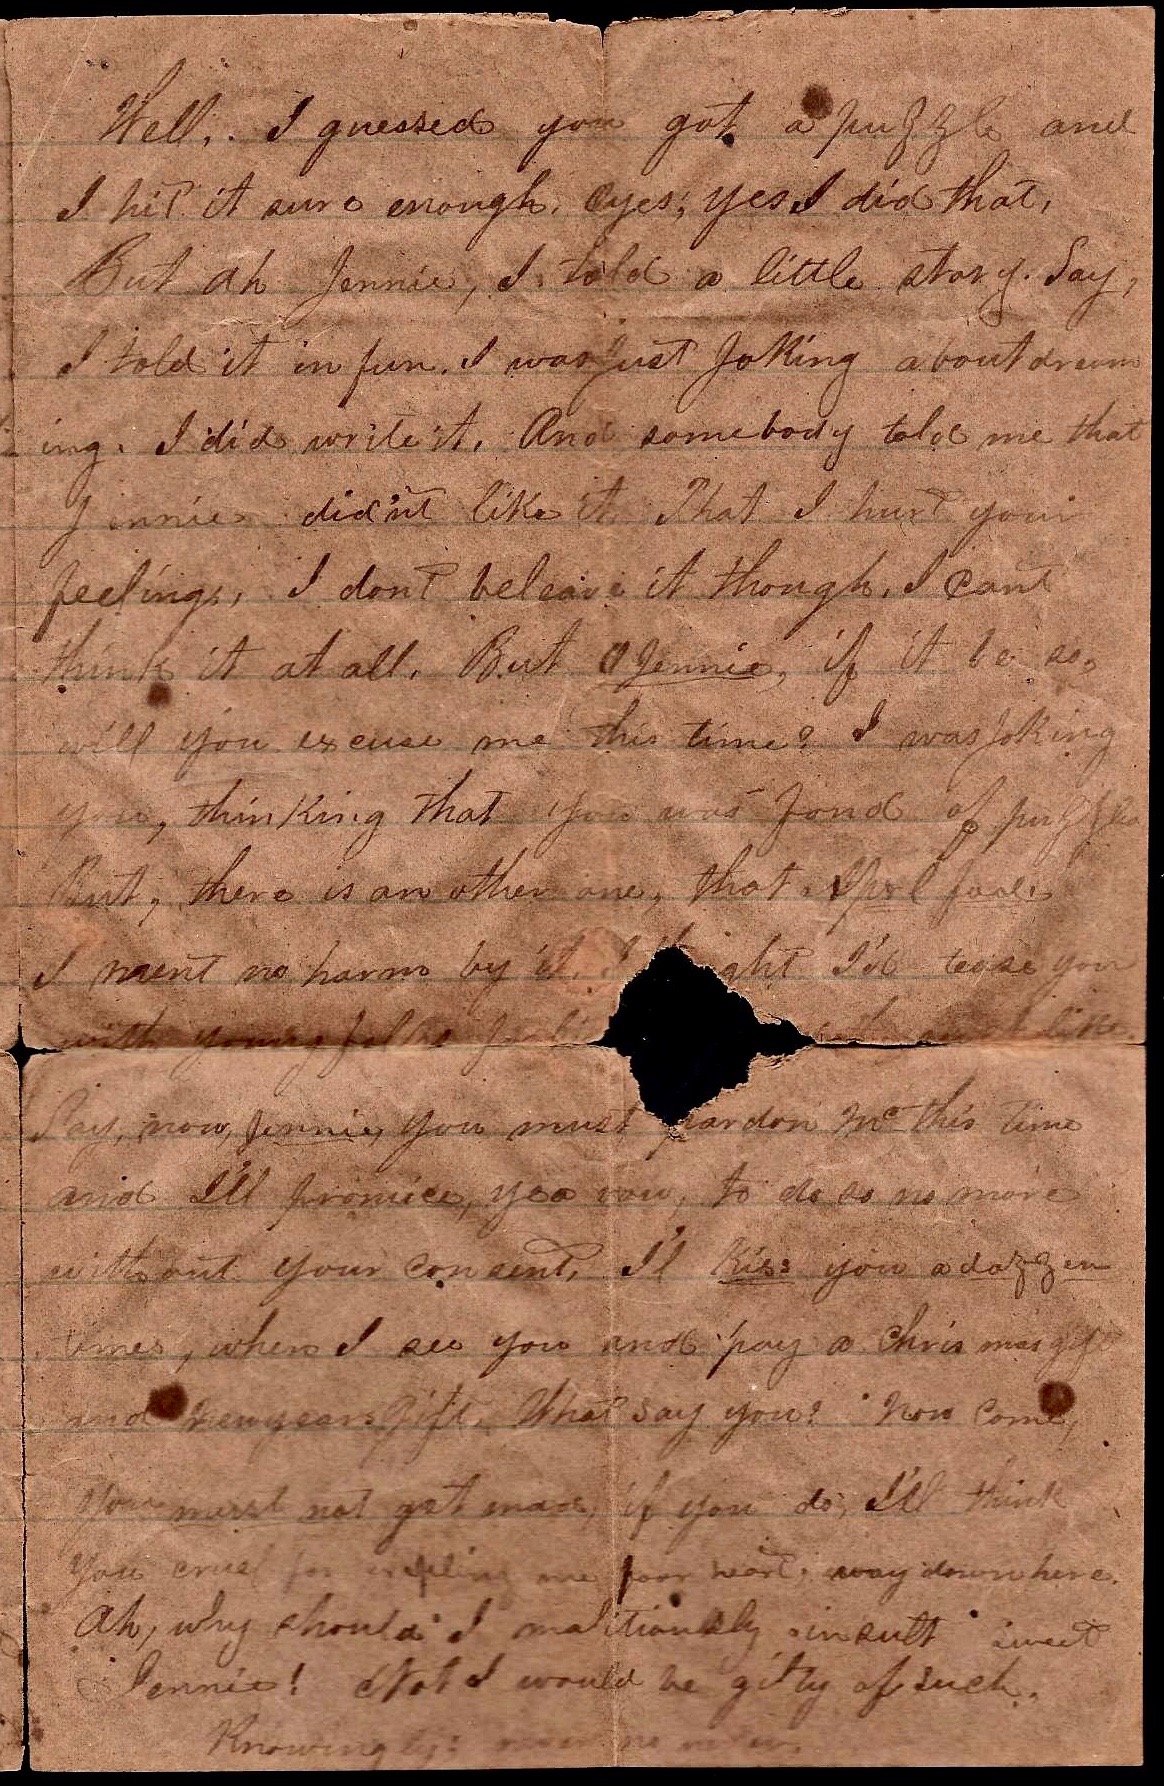 Well,. I guessed you got a puzzle and
I hit it sure enough. Oyes, yes I did that,
But ah Jennie, I told a little story. Say,
I told it in fun. I was Just Joking about dream
ing. I did write it, And somebody told me that
Jennie did'nt like it. That I hurt your
feelings, I dont beleave it though, I cant
think it at all. But O Jennie, if it be so,
will you excuse me this time? I was Joking
you, thinking that you was fond of puzzles
But, there is an other one, that Aprl fool
I ment no harm by it. I ght I'd tease you
with young like.
Say, now, Jennie, you must pardon me this time
and I'll promice, yea vow, to do so no more
without your consent, I'l kiss you a dozzen
times, when I see you and pay a Chris mas gift
and New years Gift. What say you? Now come,
You must not get mad, if you do, I'll think
you cruel for me poor heart, way down here.
Ah, why should I malitiously insult sweet
Jennie! Not I would be gilty of such.
Knowingly: no never.